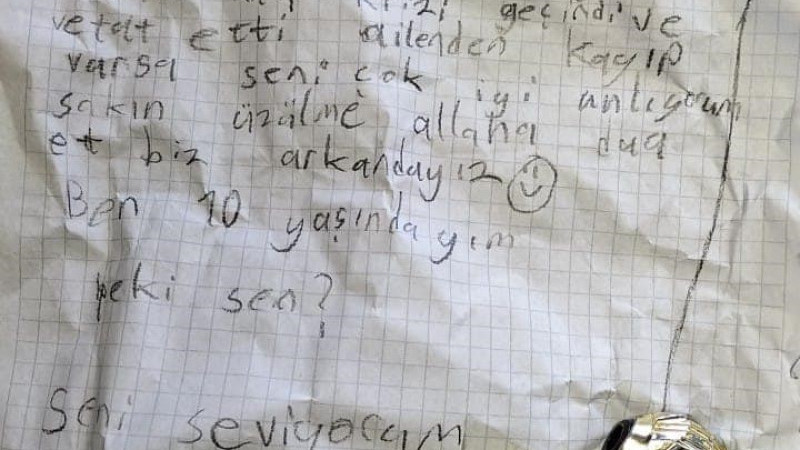 krizi geçirdi ve
vefat etti ailenden kayıp
varsa seni çok iyi anlıyorum
sakın üzülme allaha dua
et biz arkandayız
Ben 10 yaşındayım
peki sen?
Seni seviyorum